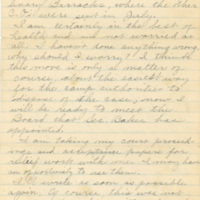 linary Barracks, where the other
C.O.s were sent in July.
I am certainly in the best of
health and am not worried at
all. I haven't done anything wrong,
why should I worry? I think
this move is only a matter of
course, along the easiest way
for the camp authorities to
dispose of the case, now I
will be ready to meet the
Board that Sec. Baker has
appointed.
I am taking my court proceed-
ings and acceptance papers for
relief work with me. I may have
an opportunity to use them.
I'll write as soon as possible
again. Of course this was not